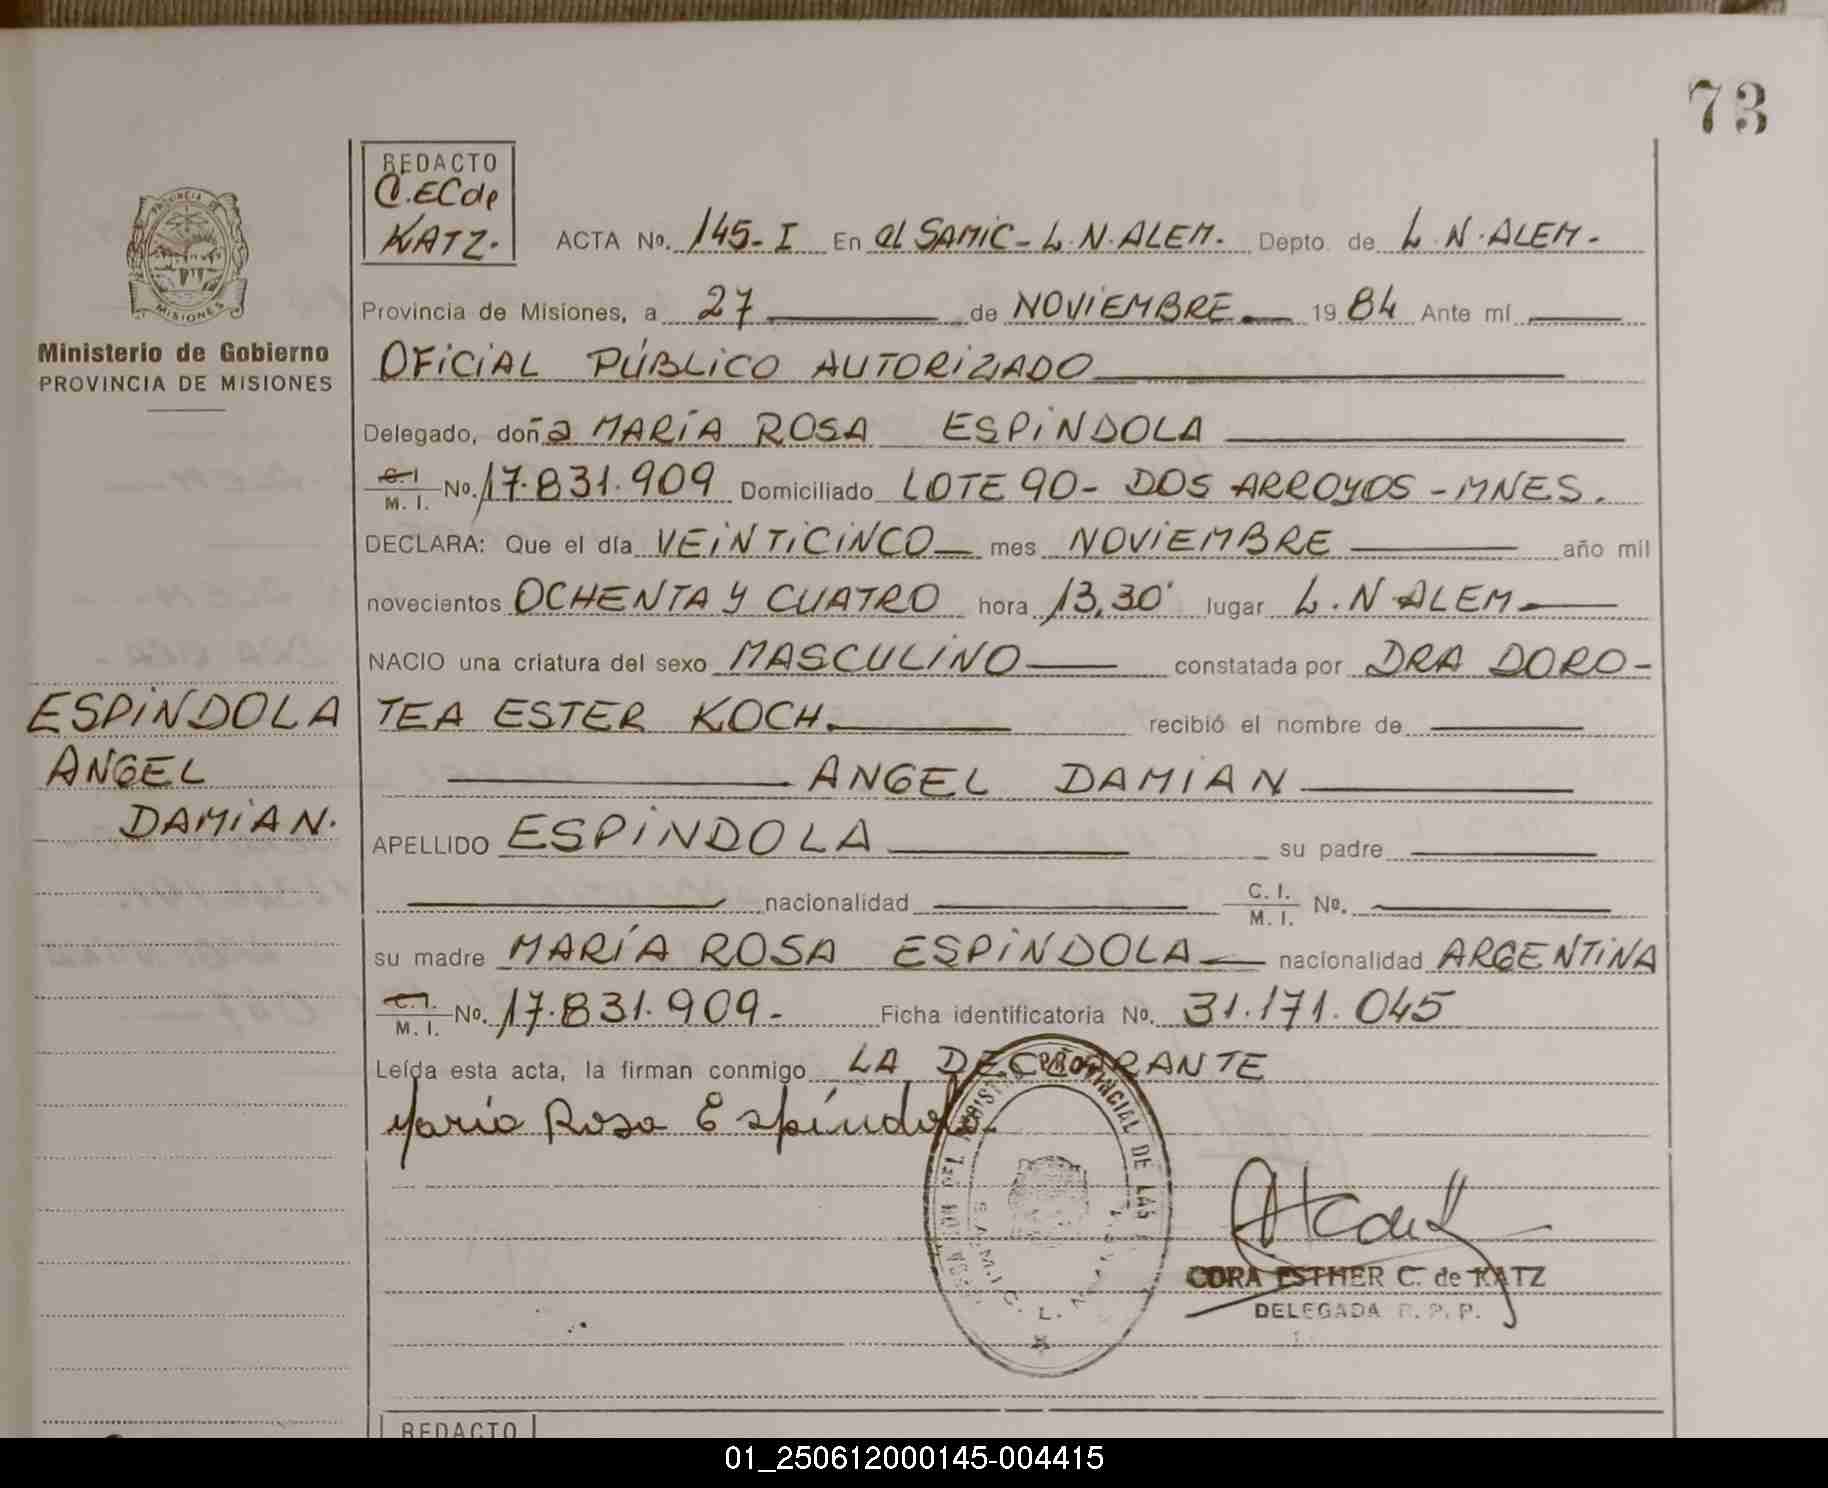 73
REDACTO
C. EC de
KATZ.
ACTA No. 145-I En el SAMIC - L.N. ALEM. Depto. de L.N. ALEM.-
PROVINCIA DE
MISIONES
Provincia de Misiones, a 27 de NOVIEMBRE 1984 Ante mí
Ministerio de Gobierno
PROVINCIA DE MISIONES
OFICIAL PÚBLICO AUTORIZADO
Delegado, doña MARÍA ROSA ESPÍNDOLA
C.I
M. I. No. 17.831.909 Domiciliado LOTE 90 - DOS ARROYOS - MNES.
DECLARA: Que el día VEINTICINCO mes NOVIEMBRE año mil
novecientos OCHENTA Y CUATRO hora 13,30' lugar L.N ALEM
NACIO una criatura del sexo MASCULINO constatada por DRA DORO-
ESPÍNDOLA
ANGEL
DAMIAN.
TEA ESTER KOCH. recibió el nombre de
ANGEL DAMIAN
APELLIDO ESPÍNDOLA su padre
nacionalidad C. I.
M. I. No.
su madre MARÍA ROSA ESPÍNDOLA nacionalidad ARGENTINA
C.I.
M. I. No. 17.831.909- Ficha identificatoria No. 31.171.045
Leída esta acta, la firman conmigo LA DECLARANTE
María Rosa Espíndola
REGISTRO PROVINCIAL DE LAS
S.A.M.I.C. L.
CORA ESTHER C. de KATZ
DELEGADA R. P. P.
REDACTO
01_250612000145-004415